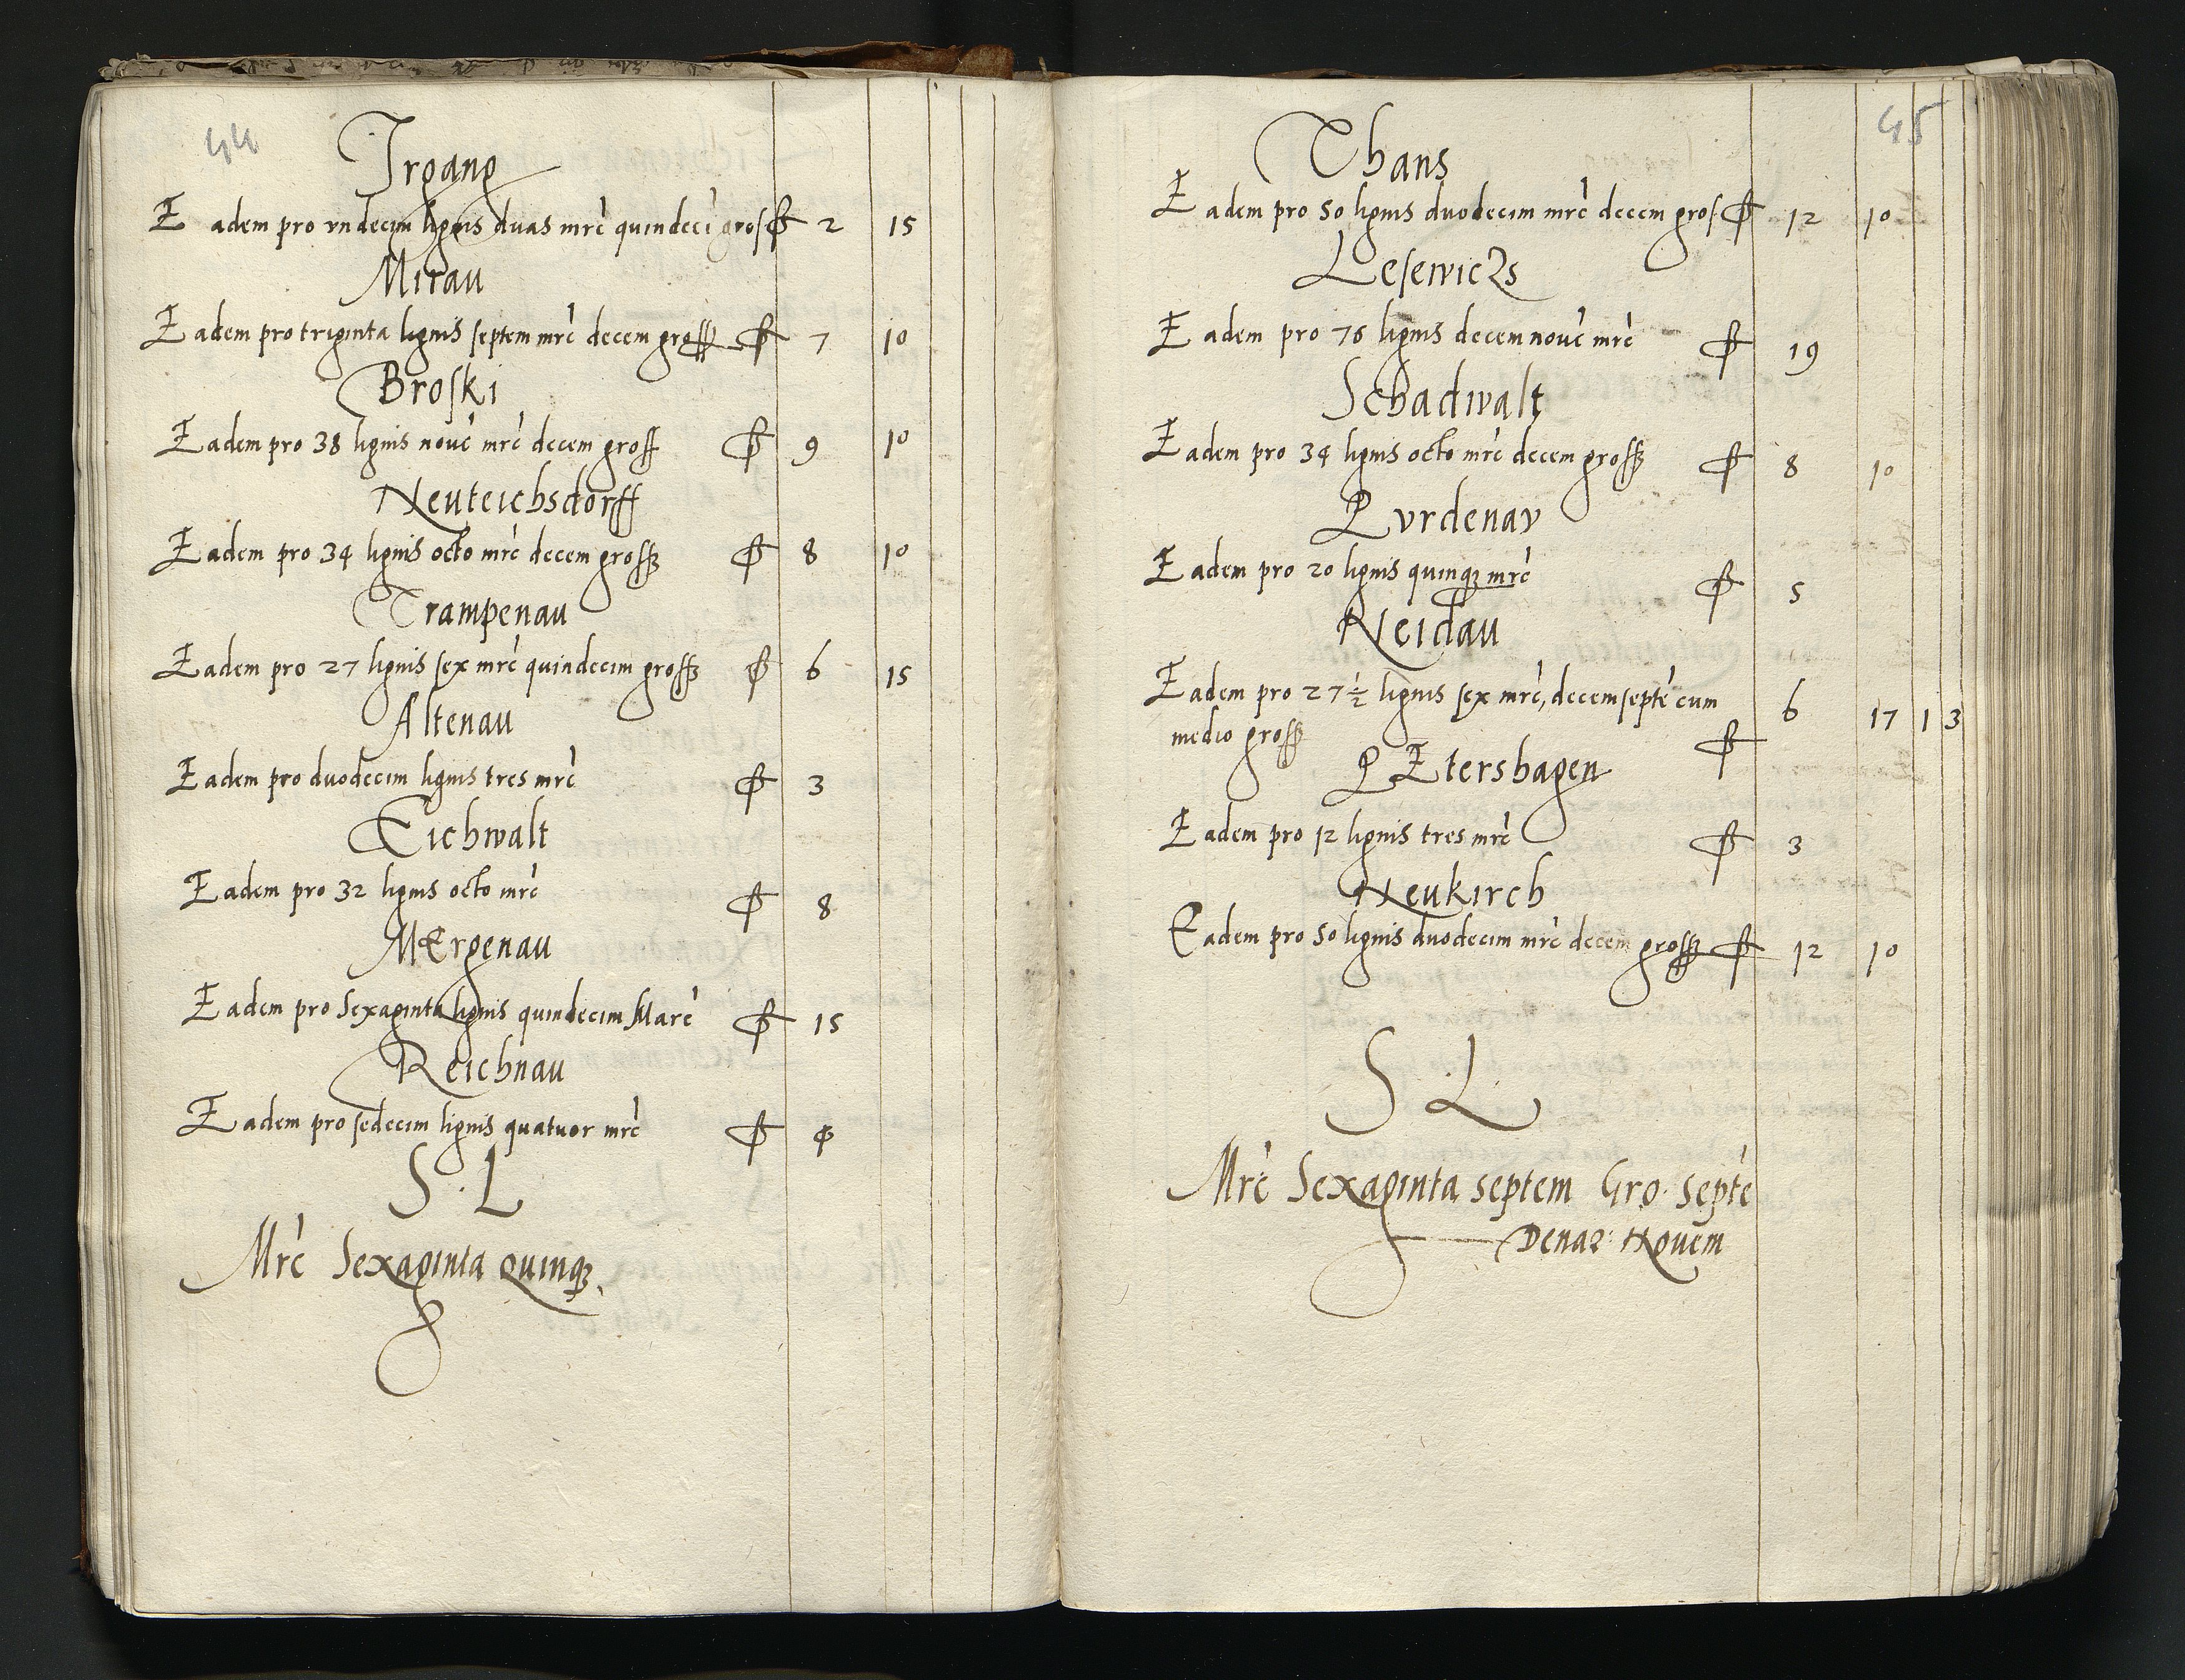 44
Irgang
Eadem pro vndecim lignis duas mrc̄ quindecī gros ꝑ 2 15
Mirau
Eadem pro triginta lignis septem mrc̄ decem gross ꝑ 7 10
Broski
Eadem pro 38 lignis nouē mrc̄ decem gross ꝑ 9 10
Neuteichsdorff
Eadem pro 34 lignis octo mrc̄ decem gross ꝑ 8 10
Trampenau
Eadem pro 27 lignis sex mrc̄ quindecim gross ꝑ 6 15
Altenau
Eadem pro duodecim lignis tres mrc̄ ꝑ 3
Eichwalt
Eadem pro 32 lignis octo mrc̄ ꝑ 8
MErgenau
Eadem pro Sexaginta lignis quindecim Marc̄ ꝑ 15
Reichnau
Eadem pro sedecim lignis quatuor mrc̄ ꝑ 4
S. L
Mrc̄ Sexaginta quinqꝫ
45
Thans
Eadem pro 50 lignis duodecim mrc̄ decem gros ꝑ 12 10
Lesewiczs
Eadem pro 76 lignis decem nouē mrc̄ ꝑ 19
Schadwalt
Eadem pro 34 lignis octo mrc̄ decem gross ꝑ 8 10
Pvrdenav
Eadem pro 20 lignis quinqꝫ mrc̄ ꝑ 5
Neidau
Eadem pro 27½ lignis sex mrc̄, decem septē cum 6 17 1 3
medio gross ꝑ
PEtershagen
Eadem pro 12 lignis tres mrc̄ ꝑ 3
Neukirch
Eadem pro 50 lignis duodecim mrc̄ decem gross ꝑ 12 10
S. L.
Mrc̄ Sexaginta septem Gro. septē
Denar: Novem